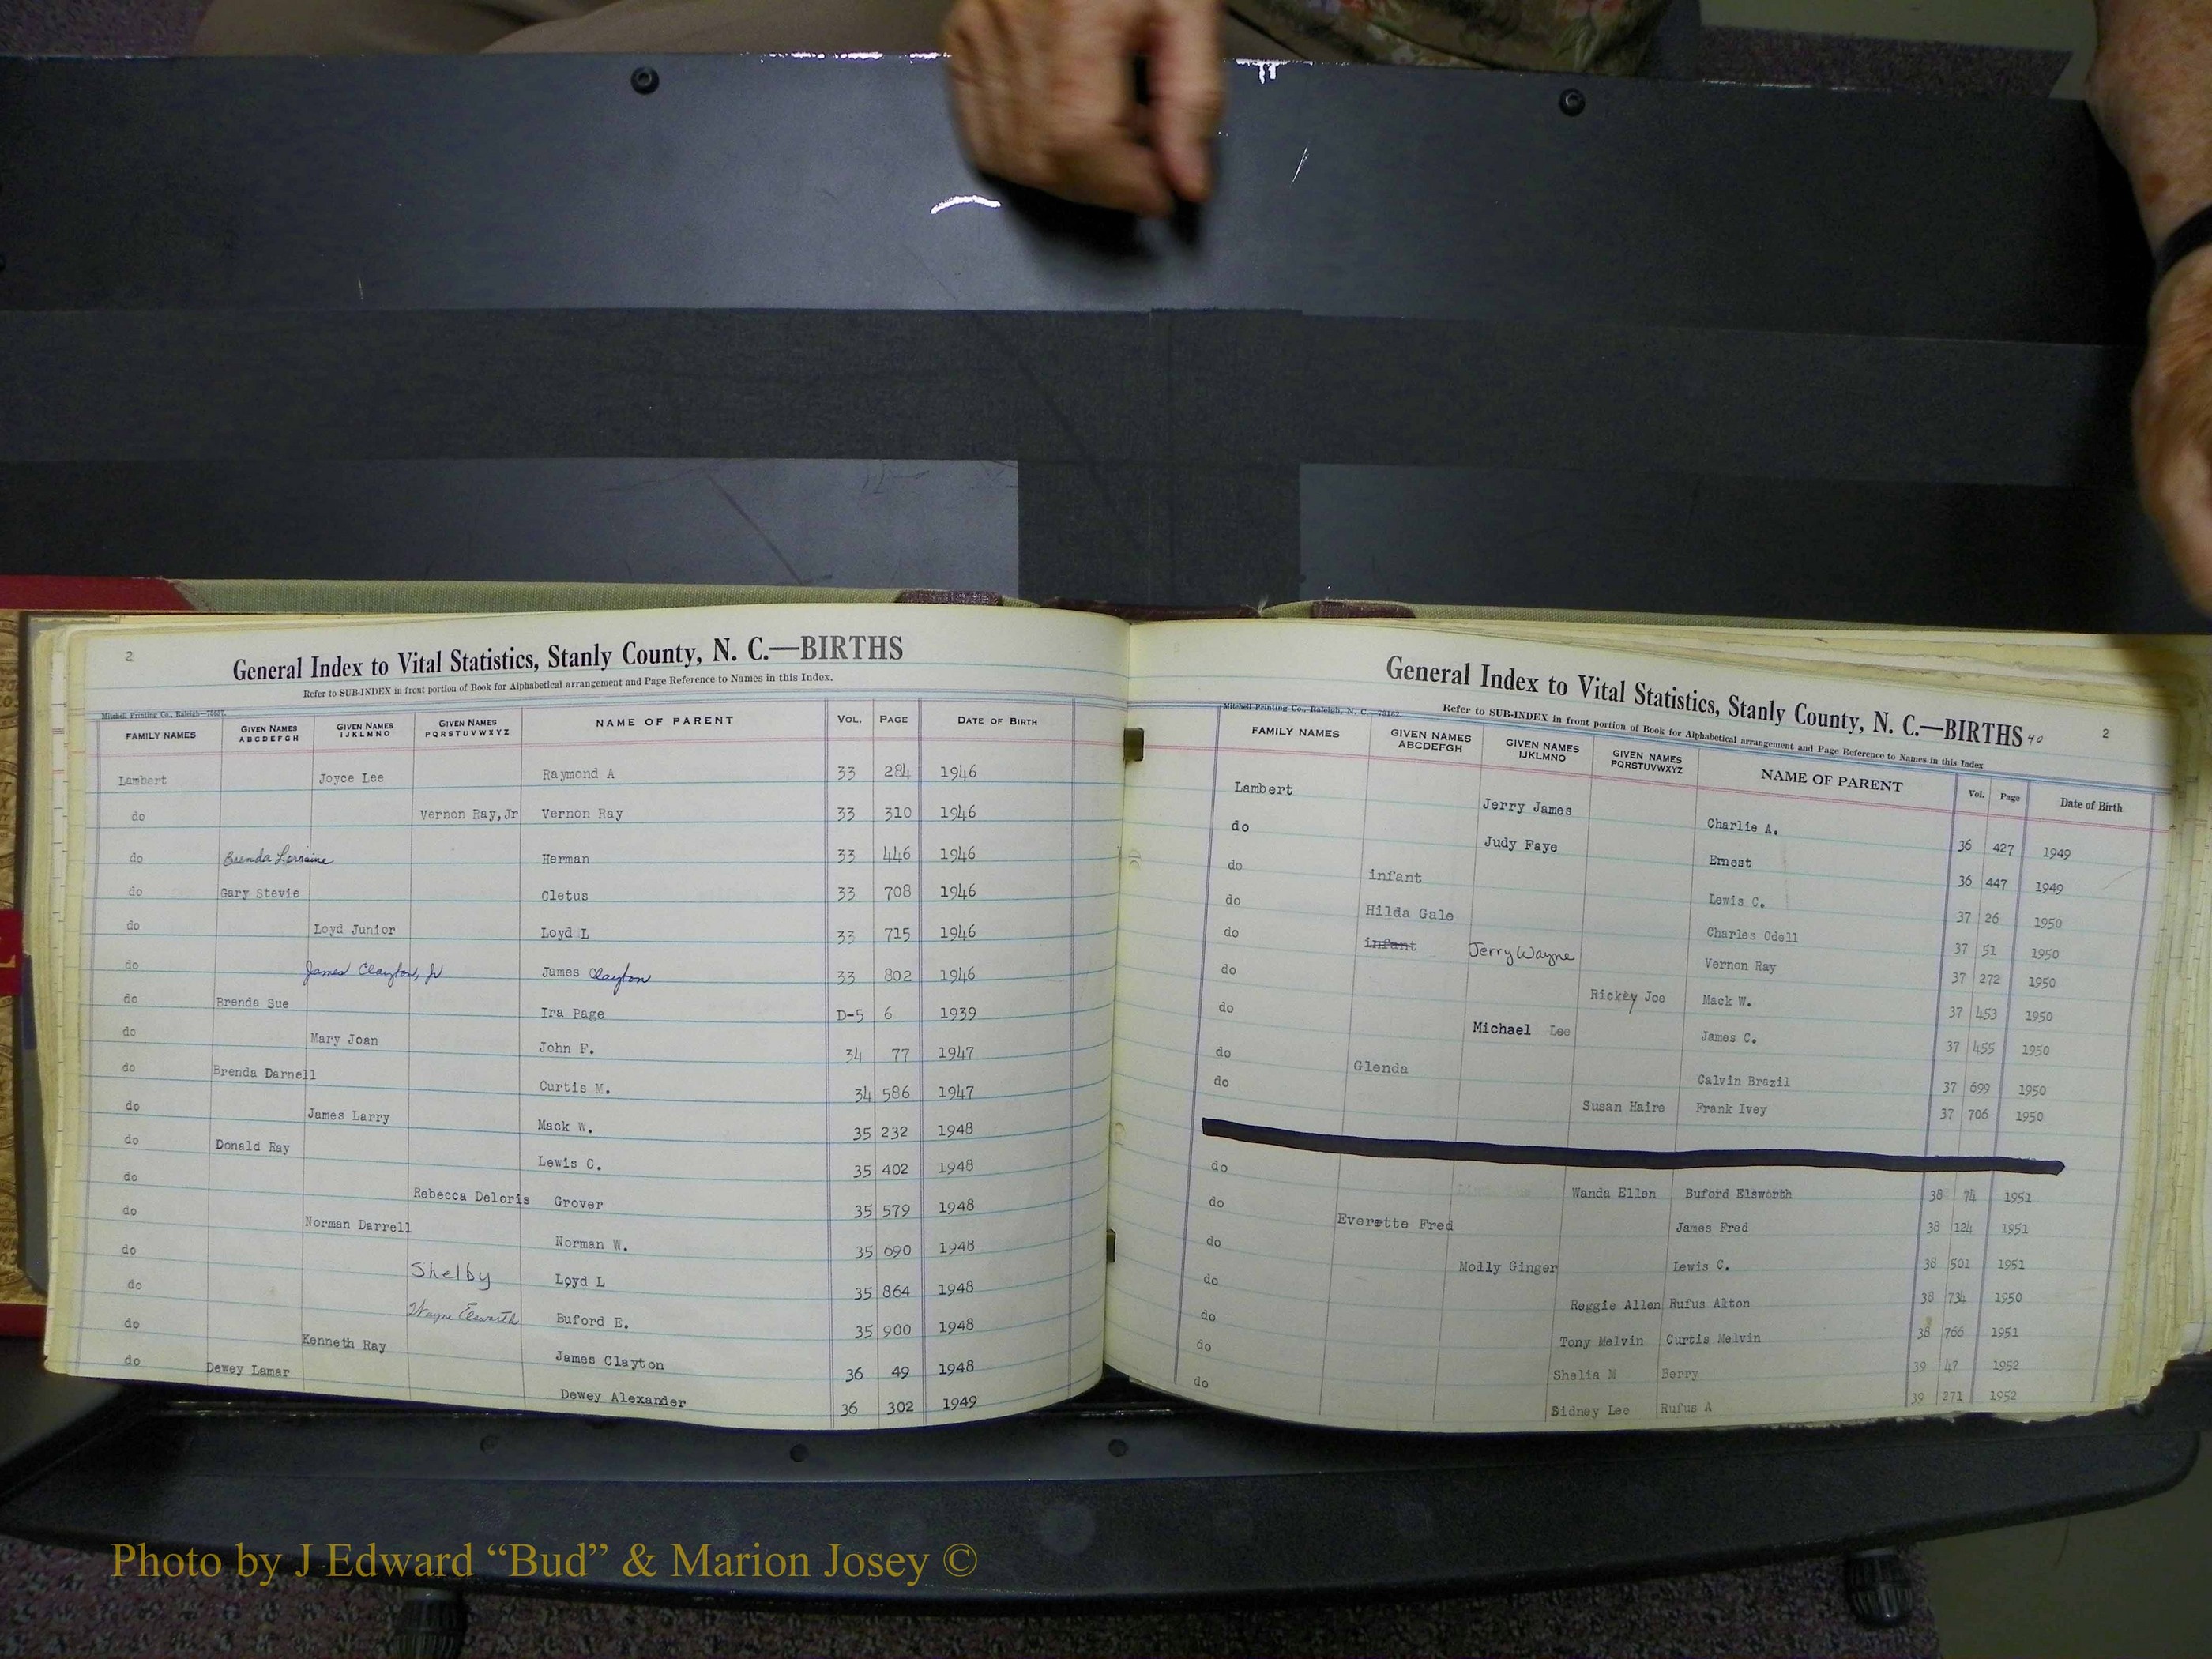 2
General Index to Vital Statistics, Stanly County, N. C.—BIRTHS
Refer to SUB-INDEX in front portion of Book for Alphabetical arrangement and Page Reference to Names in this Index.
Mitchell Printing Co., Raleigh
FAMILY NAMES GIVEN NAMES ABCDEFGH GIVEN NAMES IJKLMNO GIVEN NAMES PQRSTUVWXYZ NAME OF PARENT VOL. PAGE DATE OF BIRTH
Lambert Joyce Lee Raymond A 33 284 1946
do Vernon Ray, Jr Vernon Ray 33 310 1946
do Brenda Lorraine Herman 33 446 1946
do Gary Stevie Cletus 33 708 1946
do Loyd Junior Loyd L 33 715 1946
do James Clayton, Jr James Clayton 33 802 1946
do Brenda Sue Ira Page D-5 6 1939
do Mary Joan John F. 34 77 1947
do Brenda Darnell Curtis M. 34 586 1947
do James Larry Mack W. 35 232 1948
do Donald Ray Lewis C. 35 402 1948
do Rebecca Deloris Grover 35 579 1948
do Norman Darrell Norman W. 35 690 1948
do Shelby Loyd L 35 864 1948
do Wayne Elsworth Buford E. 35 900 1948
do Kenneth Ray James Clayton 36 49 1948
do Dewey Lamar Dewey Alexander 36 302 1949
General Index to Vital Statistics, Stanly County, N. C.—BIRTHS 40 2
Refer to SUB-INDEX in front portion of Book for Alphabetical arrangement and Page Reference to Names in this Index
Mitchell Printing Co., Raleigh, N. C.
FAMILY NAMES GIVEN NAMES ABCDEFGH GIVEN NAMES IJKLMNO GIVEN NAMES PQRSTUVWXYZ NAME OF PARENT Vol. Page Date of Birth
Lambert Jerry James Charlie A. 36 427 1949
do Judy Faye Ernest 36 447 1949
do infant Lewis C. 37 26 1950
do Hilda Gale Charles Odell 37 51 1950
do infant Jerry Wayne Vernon Ray 37 272 1950
do Rickey Joe Mack W. 37 453 1950
do Michael Lee James C. 37 455 1950
do Glenda Calvin Brazil 37 699 1950
do Susan Haire Frank Ivey 37 706 1950
do Wanda Ellen Buford Elsworth 38 74 1951
do Everette Fred James Fred 38 124 1951
do Molly Ginger Lewis C. 38 501 1951
do Reggie Allen Rufus Alton 38 734 1950
do Tony Melvin Curtis Melvin 38 766 1951
do Shelia M Berry 39 47 1952
do Sidney Lee Rufus A 39 271 1952
Photo by J Edward “Bud” & Marion Josey ©